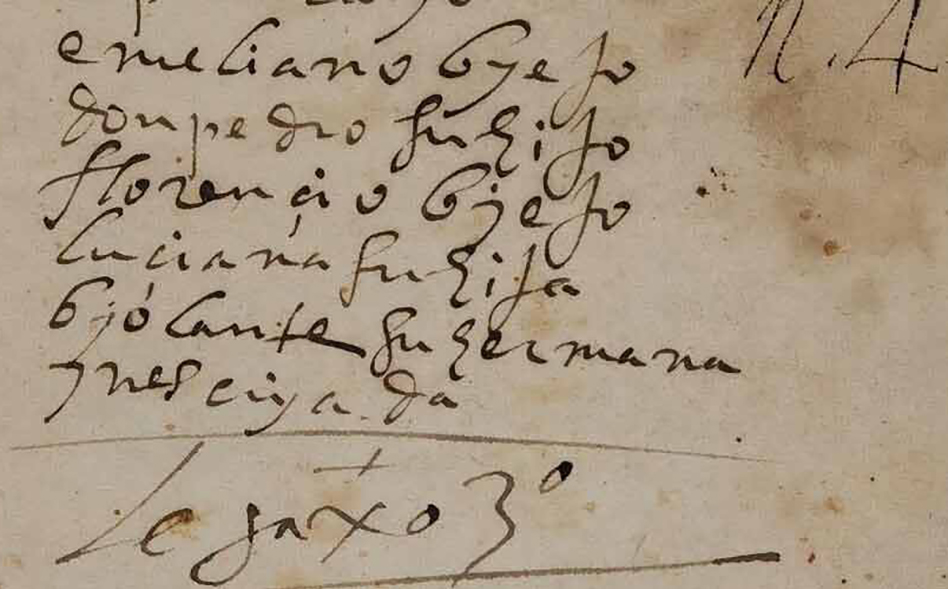 emeliano byejo
don pedro su hijo
florencio byejo
luciana su hija
byolante su hermana
ynes criada
Legaxo 3º
N. 4